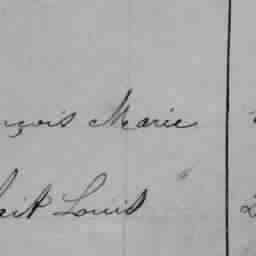 nçois Marie
Louis